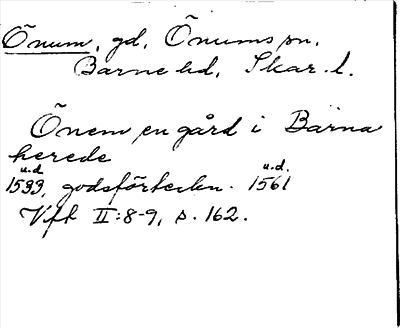 Õnum, gd, Õnums sn.
Barne hd, Skar. l.
Õnem en gård i Barna
herede
u.d. u.d.
1533, godsförteckn. 1561
Vft II:8-9, s. 162.